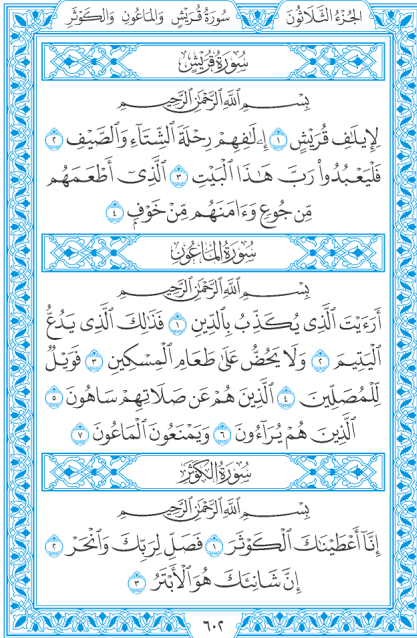 سُورَةُ قُرَيْشٍ وَالْمَاعُونِ وَالْكَوْثَرِ الجُزْءُ الثَّلَاثُونَ
سُورَةُ قُرَيْشٍ
بِسْمِ اللَّهِ الرَّحْمَٰنِ الرَّحِيمِ
لِإِيلَٰفِ قُرَيْشٍ ١ إِۦلَٰفِهِمْ رِحْلَةَ الشِّتَآءِ وَالصَّيْفِ ٢
فَلْيَعْبُدُوا۟ رَبَّ هَٰذَا الْبَيْتِ ٣ الَّذِىٓ أَطْعَمَهُم
مِّن جُوعٍ وَءَامَنَهُم مِّنْ خَوْفٍۭ ٤
سُورَةُ الْمَاعُونِ
بِسْمِ اللَّهِ الرَّحْمَٰنِ الرَّحِيمِ
أَرَءَيْتَ الَّذِى يُكَذِّبُ بِالدِّينِ ١ فَذَٰلِكَ الَّذِى يَدُعُّ
الْيَتِيمَ ٢ وَلَا يَحُضُّ عَلَىٰ طَعَامِ الْمِسْكِينِ ٣ فَوَيْلٌ
لِّلْمُصَلِّينَ ٤ الَّذِينَ هُمْ عَن صَلَاتِهِمْ سَاهُونَ ٥
الَّذِينَ هُمْ يُرَآءُونَ ٦ وَيَمْنَعُونَ الْمَاعُونَ ٧
سُورَةُ الْكَوْثَرِ
بِسْمِ اللَّهِ الرَّحْمَٰنِ الرَّحِيمِ
إِنَّآ أَعْطَيْنَٰكَ الْكَوْثَرَ ١ فَصَلِّ لِرَبِّكَ وَانْحَرْ ٢
إِنَّ شَانِئَكَ هُوَ الْأَبْتَرُ ٣
٦٠٢